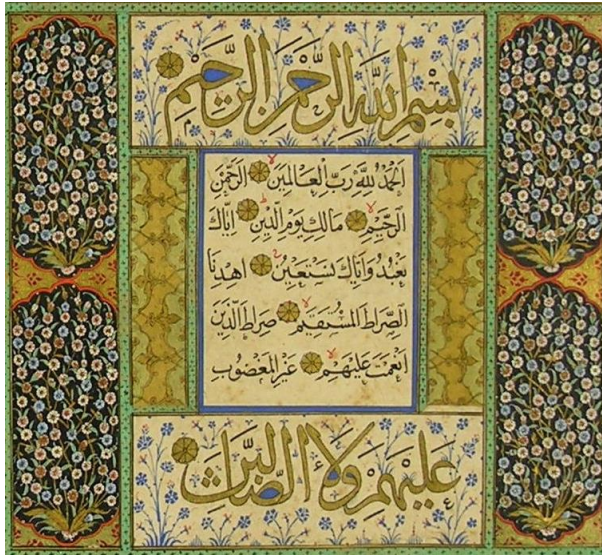 بِسْمِ اللَّهِ الرَّحْمٰنِ الرَّحِيْمِ
اَلْحَمْدُ لِلّٰهِ رَبِّ الْعَالَمِيْنَ الرَّحْمٰنِ
الرَّحِيْمِ مَالِكِ يَوْمِ الدِّيْنِ اِيَّاكَ
نَعْبُدُ وَاِيَّاكَ نَسْتَعِيْنُ اِهْدِنَا
الصِّرَاطَ الْمُسْتَقِيْمَ صِرَاطَ الَّذِيْنَ
اَنْعَمْتَ عَلَيْهِمْ غَيْرِ الْمَغْضُوبِ
عَلَيْهِمْ وَلَا الضَّالِّيْنَ